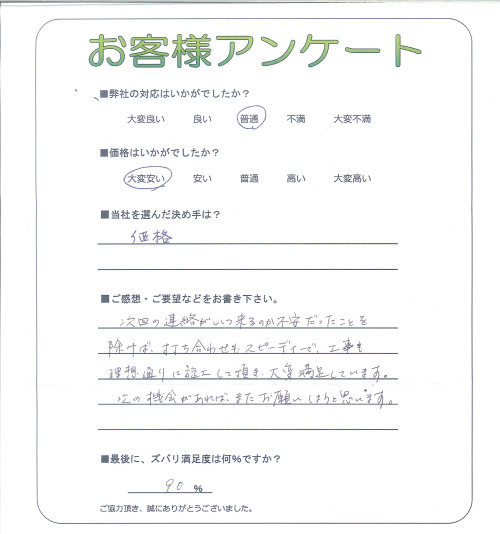 お客様アンケート
■弊社の対応はいかがでしたか？
大変良い 良い 普通 不満 大変不満
■価格はいかがでしたか？
大変安い 安い 普通 高い 大変高い
■当社を選んだ決め手は？
価格
■ご感想・ご要望などをお書き下さい。
次回の連絡がいつ来るのか不安だったことを
除けば、打ち合わせもスピーディーで、工事も
理想通りに施工して頂き、大変満足しています。
次の機会があれば、またお願いしようと思います。
■最後に、ズバリ満足度は何％ですか？
90 ％
ご協力頂き、誠にありがとうございました。